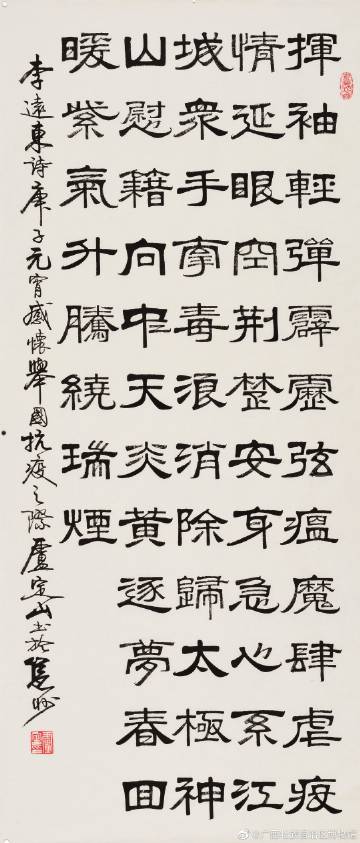 揮袖輕彈霹靂弦瘟魔肆虐疫
情延眼空荆楚安身急心系江
城衆手牽毒浪消除歸太極神
山慰籍向中天炎黄逐夢春回
暖紫氣升騰繞瑞煙
李遠東詩庚子元宵感懷舉國抗疫之際盧定山書於邕州